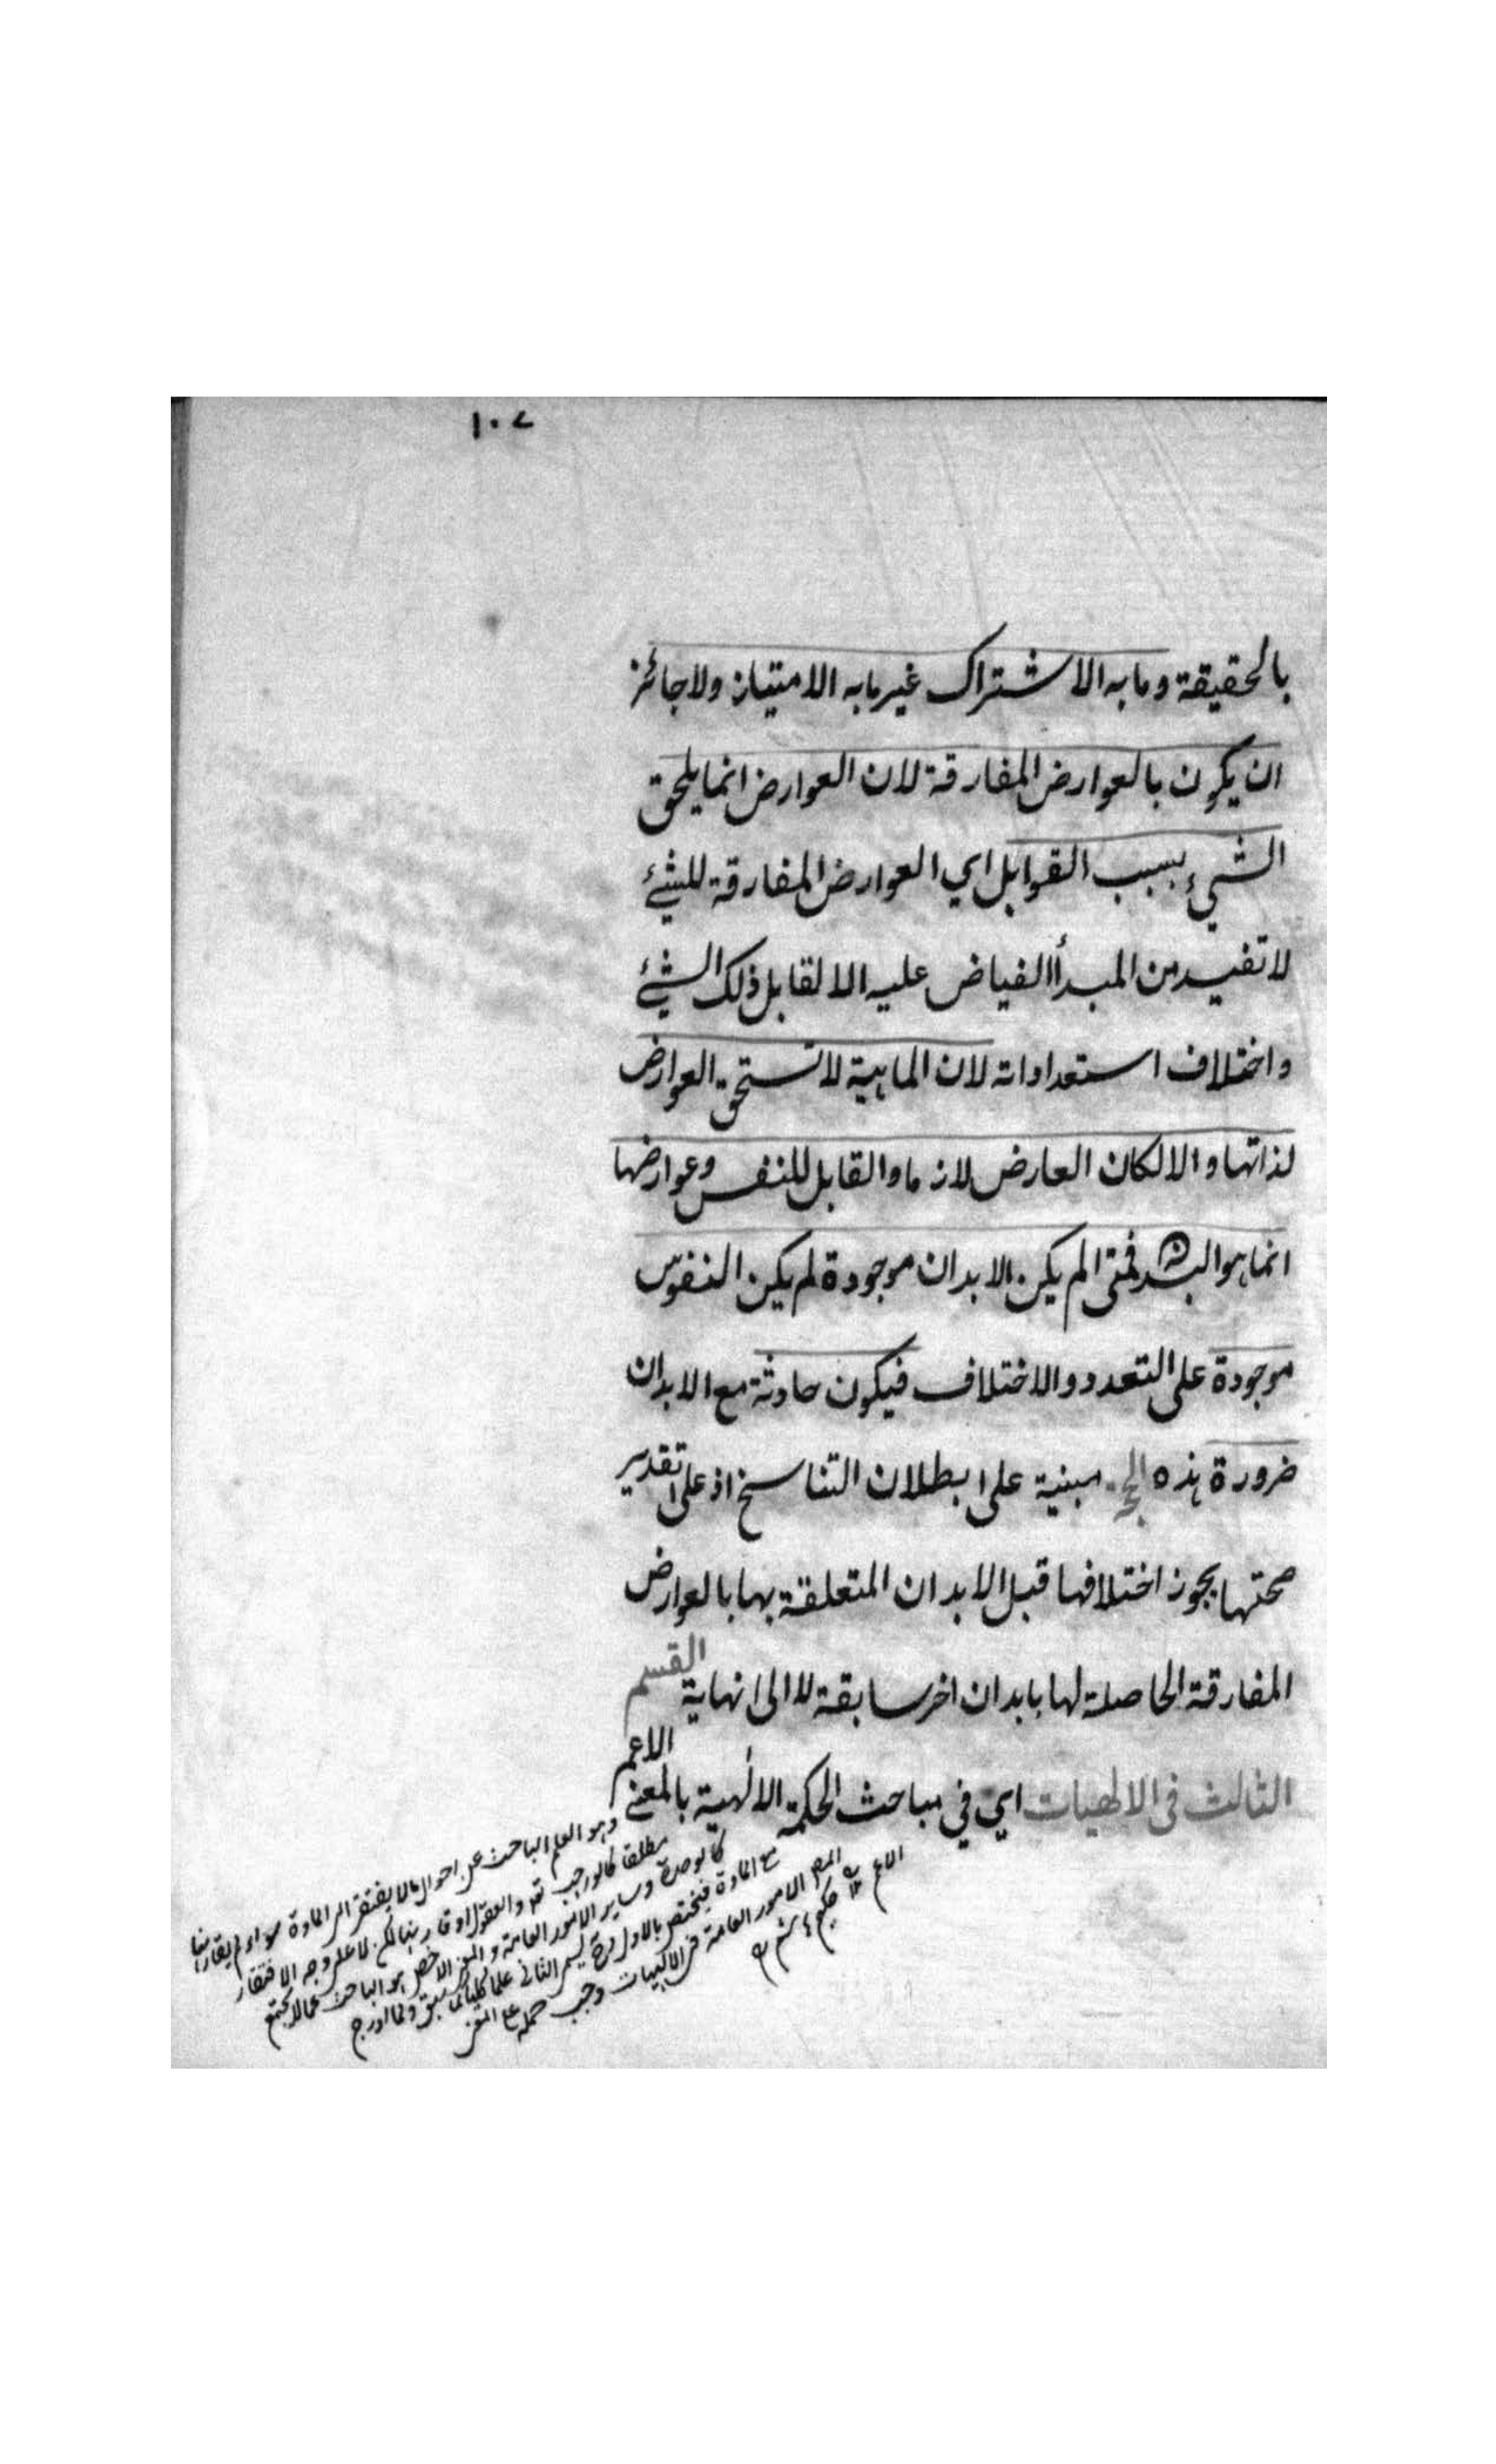 ١٠٧
بالحقيقة وما به الاشتراك غير ما به الامتياز ولا جائز
ان يكون بالعوارض المفارقة لان العوارض انما يلحق
الشيء بسبب القوابل اي العوارض المفارقة للشئ
لا تفيد من المبدأ الفياض عليه الا لقابل ذلك الشئ
واختلاف استعداداته لان الماهية لا تستحق العوارض
لذاتها والا لكان العارض لازما والقابل للنفس وعوارضها
انما هو البدن فمتى لم يكن الابدان موجودة لم يكن النفوس
موجودة على التعدد والاختلاف فيكون حادثة مع الابدان
ضرورة هذه الحجة مبنية على ابطلان التناسخ اذ على تقدير
صحتها يجوز اختلافها قبل الابدان المتعلقة بها بالعوارض
المفارقة الحاصلة لها بابدان اخر سابقة لا الى نهاية القسم
الثالث في الالهيات اي في مباحث الحكمة الالهية بالمعنى الاعم
وهو العلم الباحث عن احوال ما لا يفتقر الى المادة سواء لم يقارنها
مطلقا كالواجب تعم والعقول او قارنها لكن لا على وجه الافتقار
كالوحدة وساير الامور العامة والمعنى الاخص هو الباحث عما لا يجتمع
مع المادة فيختص بالاول وح يسمى الثاني علما كليا كما سبق ولما ادرج
المص الامور العامة في الالهيات وجب حمله على المعنى
الاعم